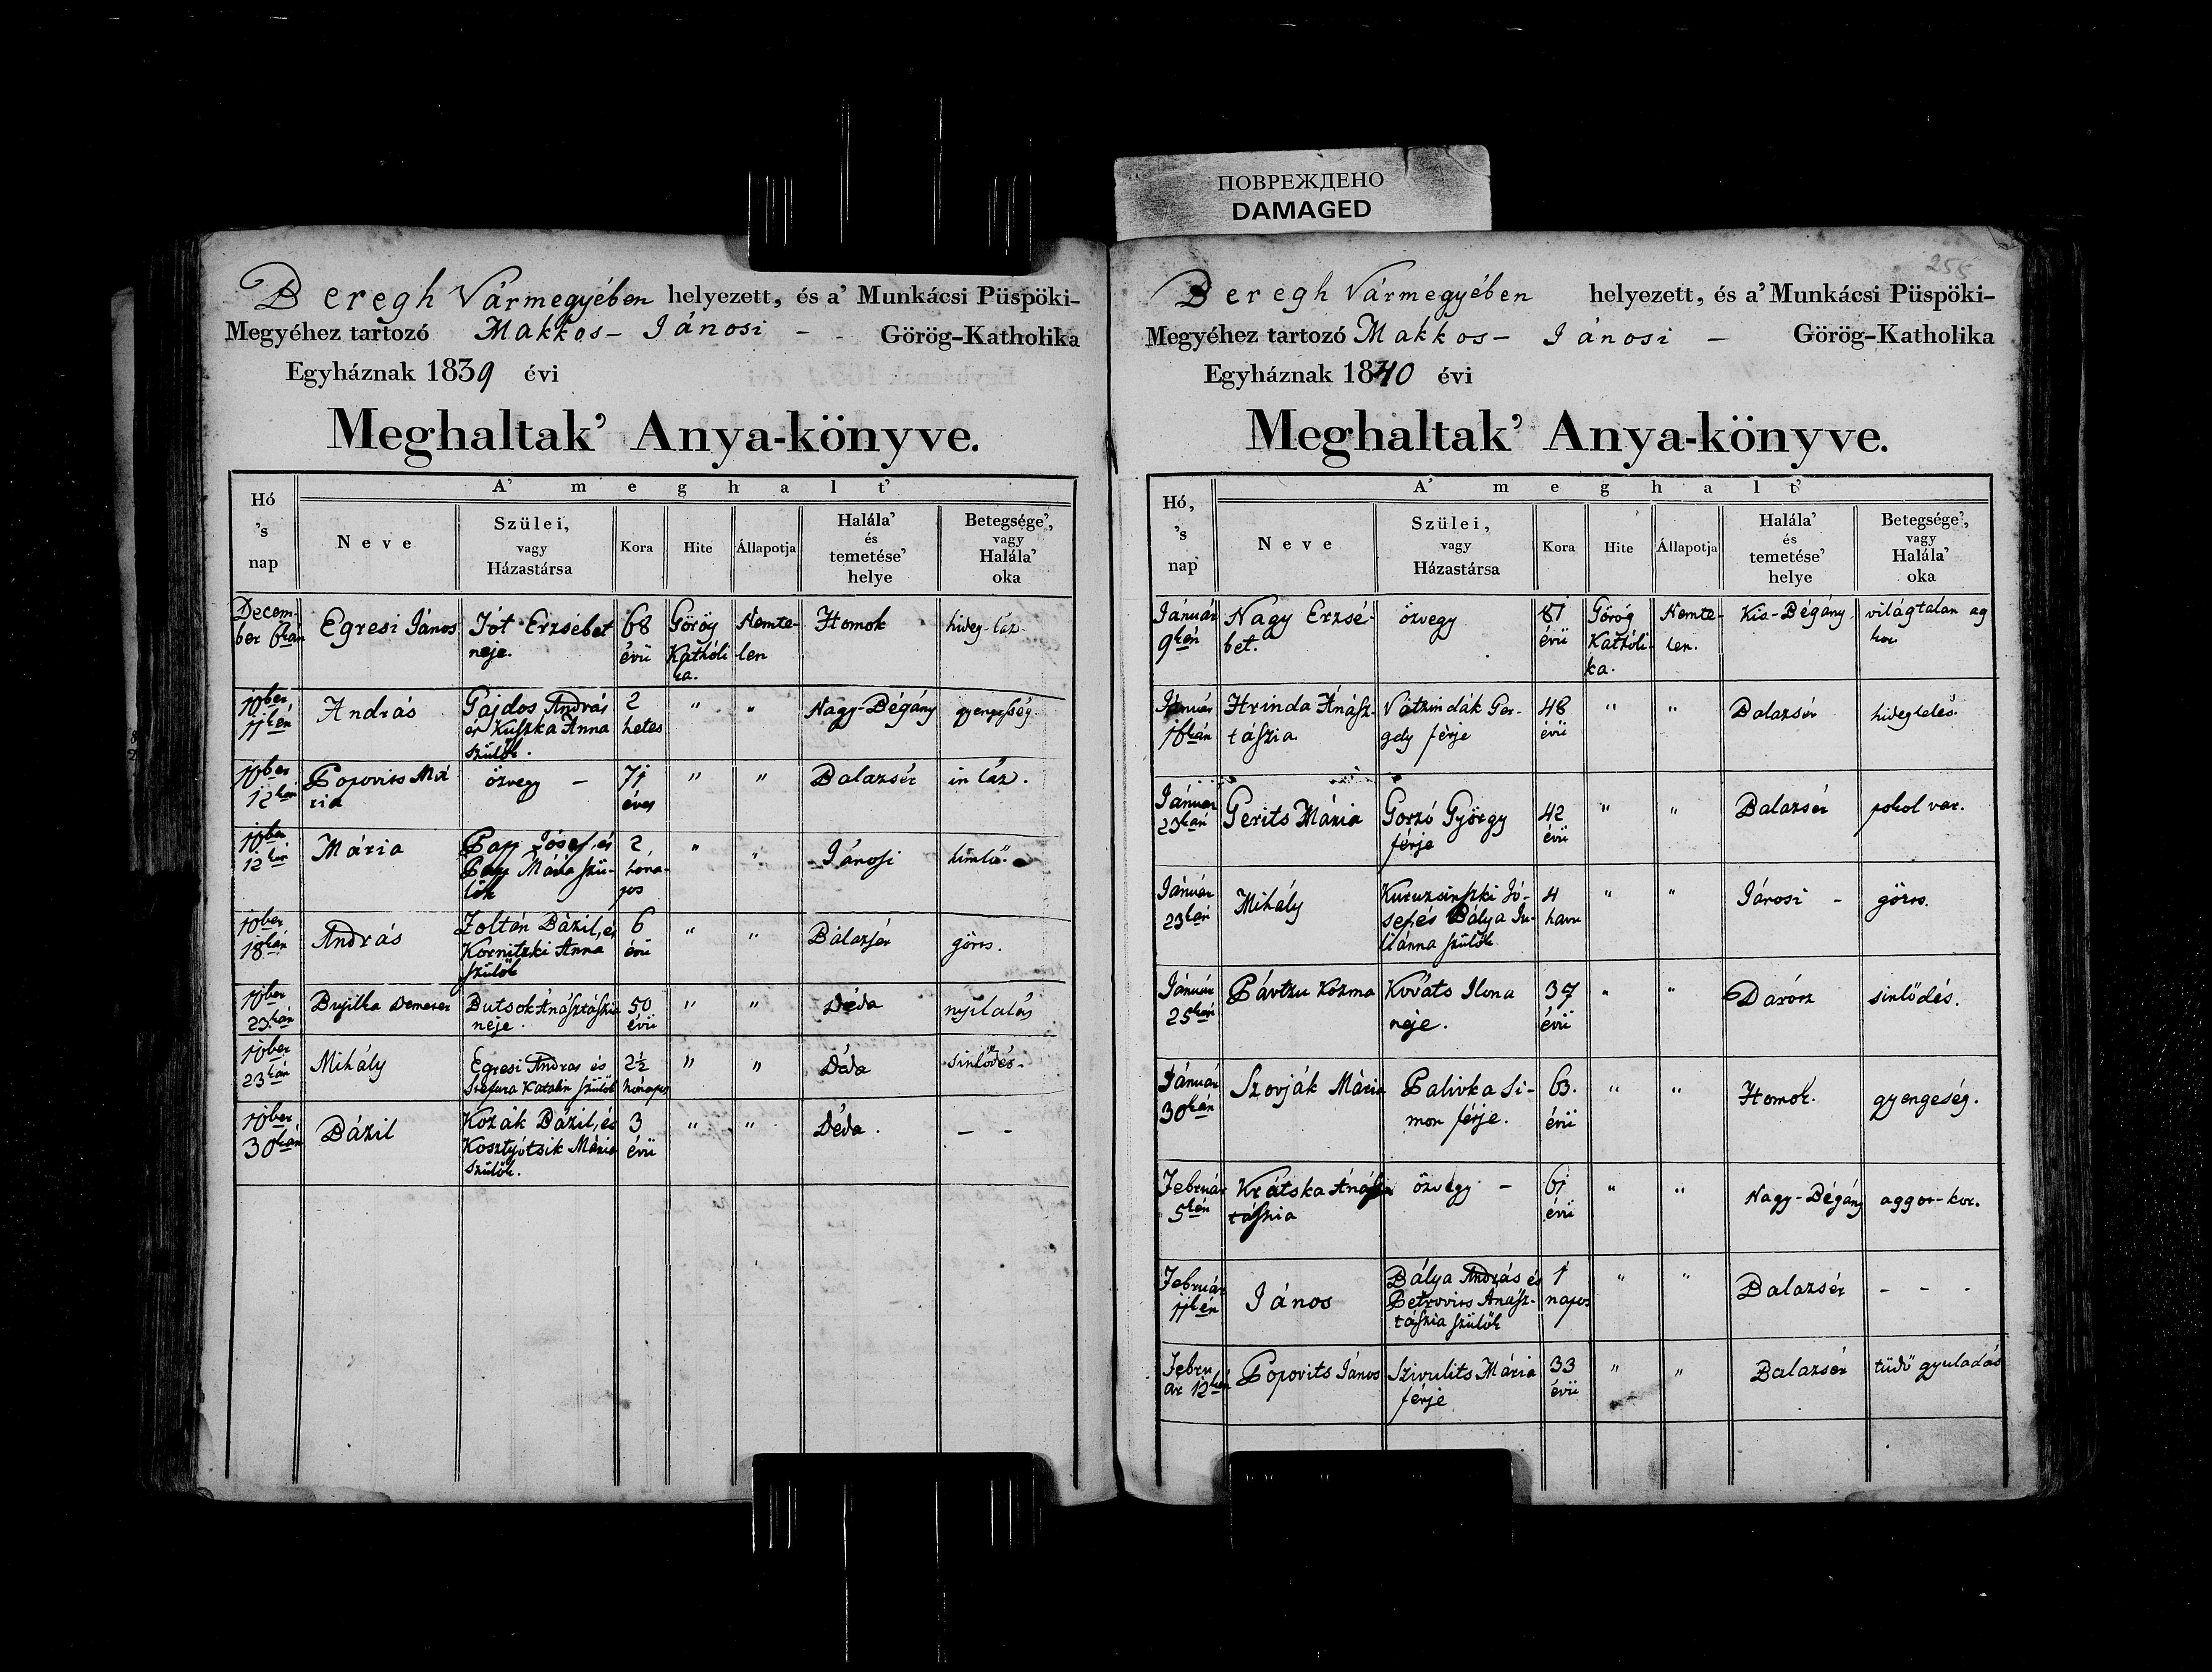 ПОВРЕЖДЕНО
DAMAGED
Beregh Vármegyében helyezett, és a' Munkácsi Püspöki-
Megyéhez tartozó Makkos- Jánosi - Görög-Katholika
Egyháznak 1839 évi
Meghaltak' Anya-könyve.
A' meghalt'
Hó
's
nap
Neve
Szülei,
vagy
Házastársa
Kora
Hite
Állapotja
Halála'
és
temetése'
helye
Betegsége',
vagy
Halála'
oka
Decem-
ber 6kán
Egresi János
Tót Erzsébet
neje.
68
évü
Görög
Kathóli
ka.
Nemte-
len
Homok
hideg-láz.
10ber
11kén
András
Gajdos András
és Kuszka Anna
szülők.
2
hetes
"
"
Nagy-Bégány
gyengesség.
10ber
12kén
Popovits Má
ria
özvegy -
71
éves
"
"
Balazsér
in láz.
10ber
12kén
Mária
Papp József, és
Papp Mária szü-
lők
2
hóna-
pos
"
"
Jánosi
himlö.
10ber
18kán
András
Zoltán Bázil, és
Kornitzki Anna
szülők
6
évü
"
"
Balazsér
görcs.
10ber
23kán
Demeter
Butsok Anásztászia
neje.
50
évü
"
"
Déda
nyilalás
10ber
23kán
Mihály
Egresi András és
Stefura Katalin szülők
2½
hónapos
"
"
Déda
sinlődés.
10ber
30kán
Bázil
Kozák Bázil, és
Kosztyótsik Mária
szülők.
3
évü
"
"
Déda.
- -
255
Beregh Vármegyében helyezett, és a' Munkácsi Püspöki-
Megyéhez tartozó Makkos- Jánosi - Görög-Katholika
Egyháznak 1840 évi
Meghaltak' Anya-könyve.
A' meghalt'
Hó,
's
nap
Neve
Szülei,
vagy
Házastársa
Kora
Hite
Állapotja
Halála'
és
temetése'
helye
Betegsége',
vagy
Halála'
oka
Január
9kén
Nagy Erzsé-
bet.
özvegy
81
évü
Görög
Kathóli-
ka.
Nemte-
len.
Kis-Bégány.
világtalan ag
kor.
Január
16kán
Hrinda Anász-
tászia
Vátzindák Ger-
gely férje
48
évü
"
"
Balazsér
hideglelés.
Január
23kán
Gerits Mária
Gorzó György
férje
42
évü
"
"
Balazsér
pokol var.
Január
23kán
Mihály
Kuruzsinszki Jó-
sef és Bálya Ju-
liánna szülők
4
havu
"
"
Jánosi -
görcs.
Január
25kén
Pávtzu Kozma
Kováts Ilona
neje.
37
évü
"
"
Darócz
sinlődés.
Január
30kán
Szovják Mária
Palivka Si-
mon férje.
63.
évü
"
"
Homok.
gyengeség.
Február
5kén
Krátska Anász
tászia
özvegy -
61
évü
"
"
Nagy-Bégány
aggor-kor.
Február
11kén
János
Bálya András és
Petrovits Anász-
tászia szülők
1
napos
"
"
Balazsér
- - -
Febru
ár 12kén
Popovits János
Szivulits Mária
férje
33
évü
"
"
Balazsér
tüdő gyuladás